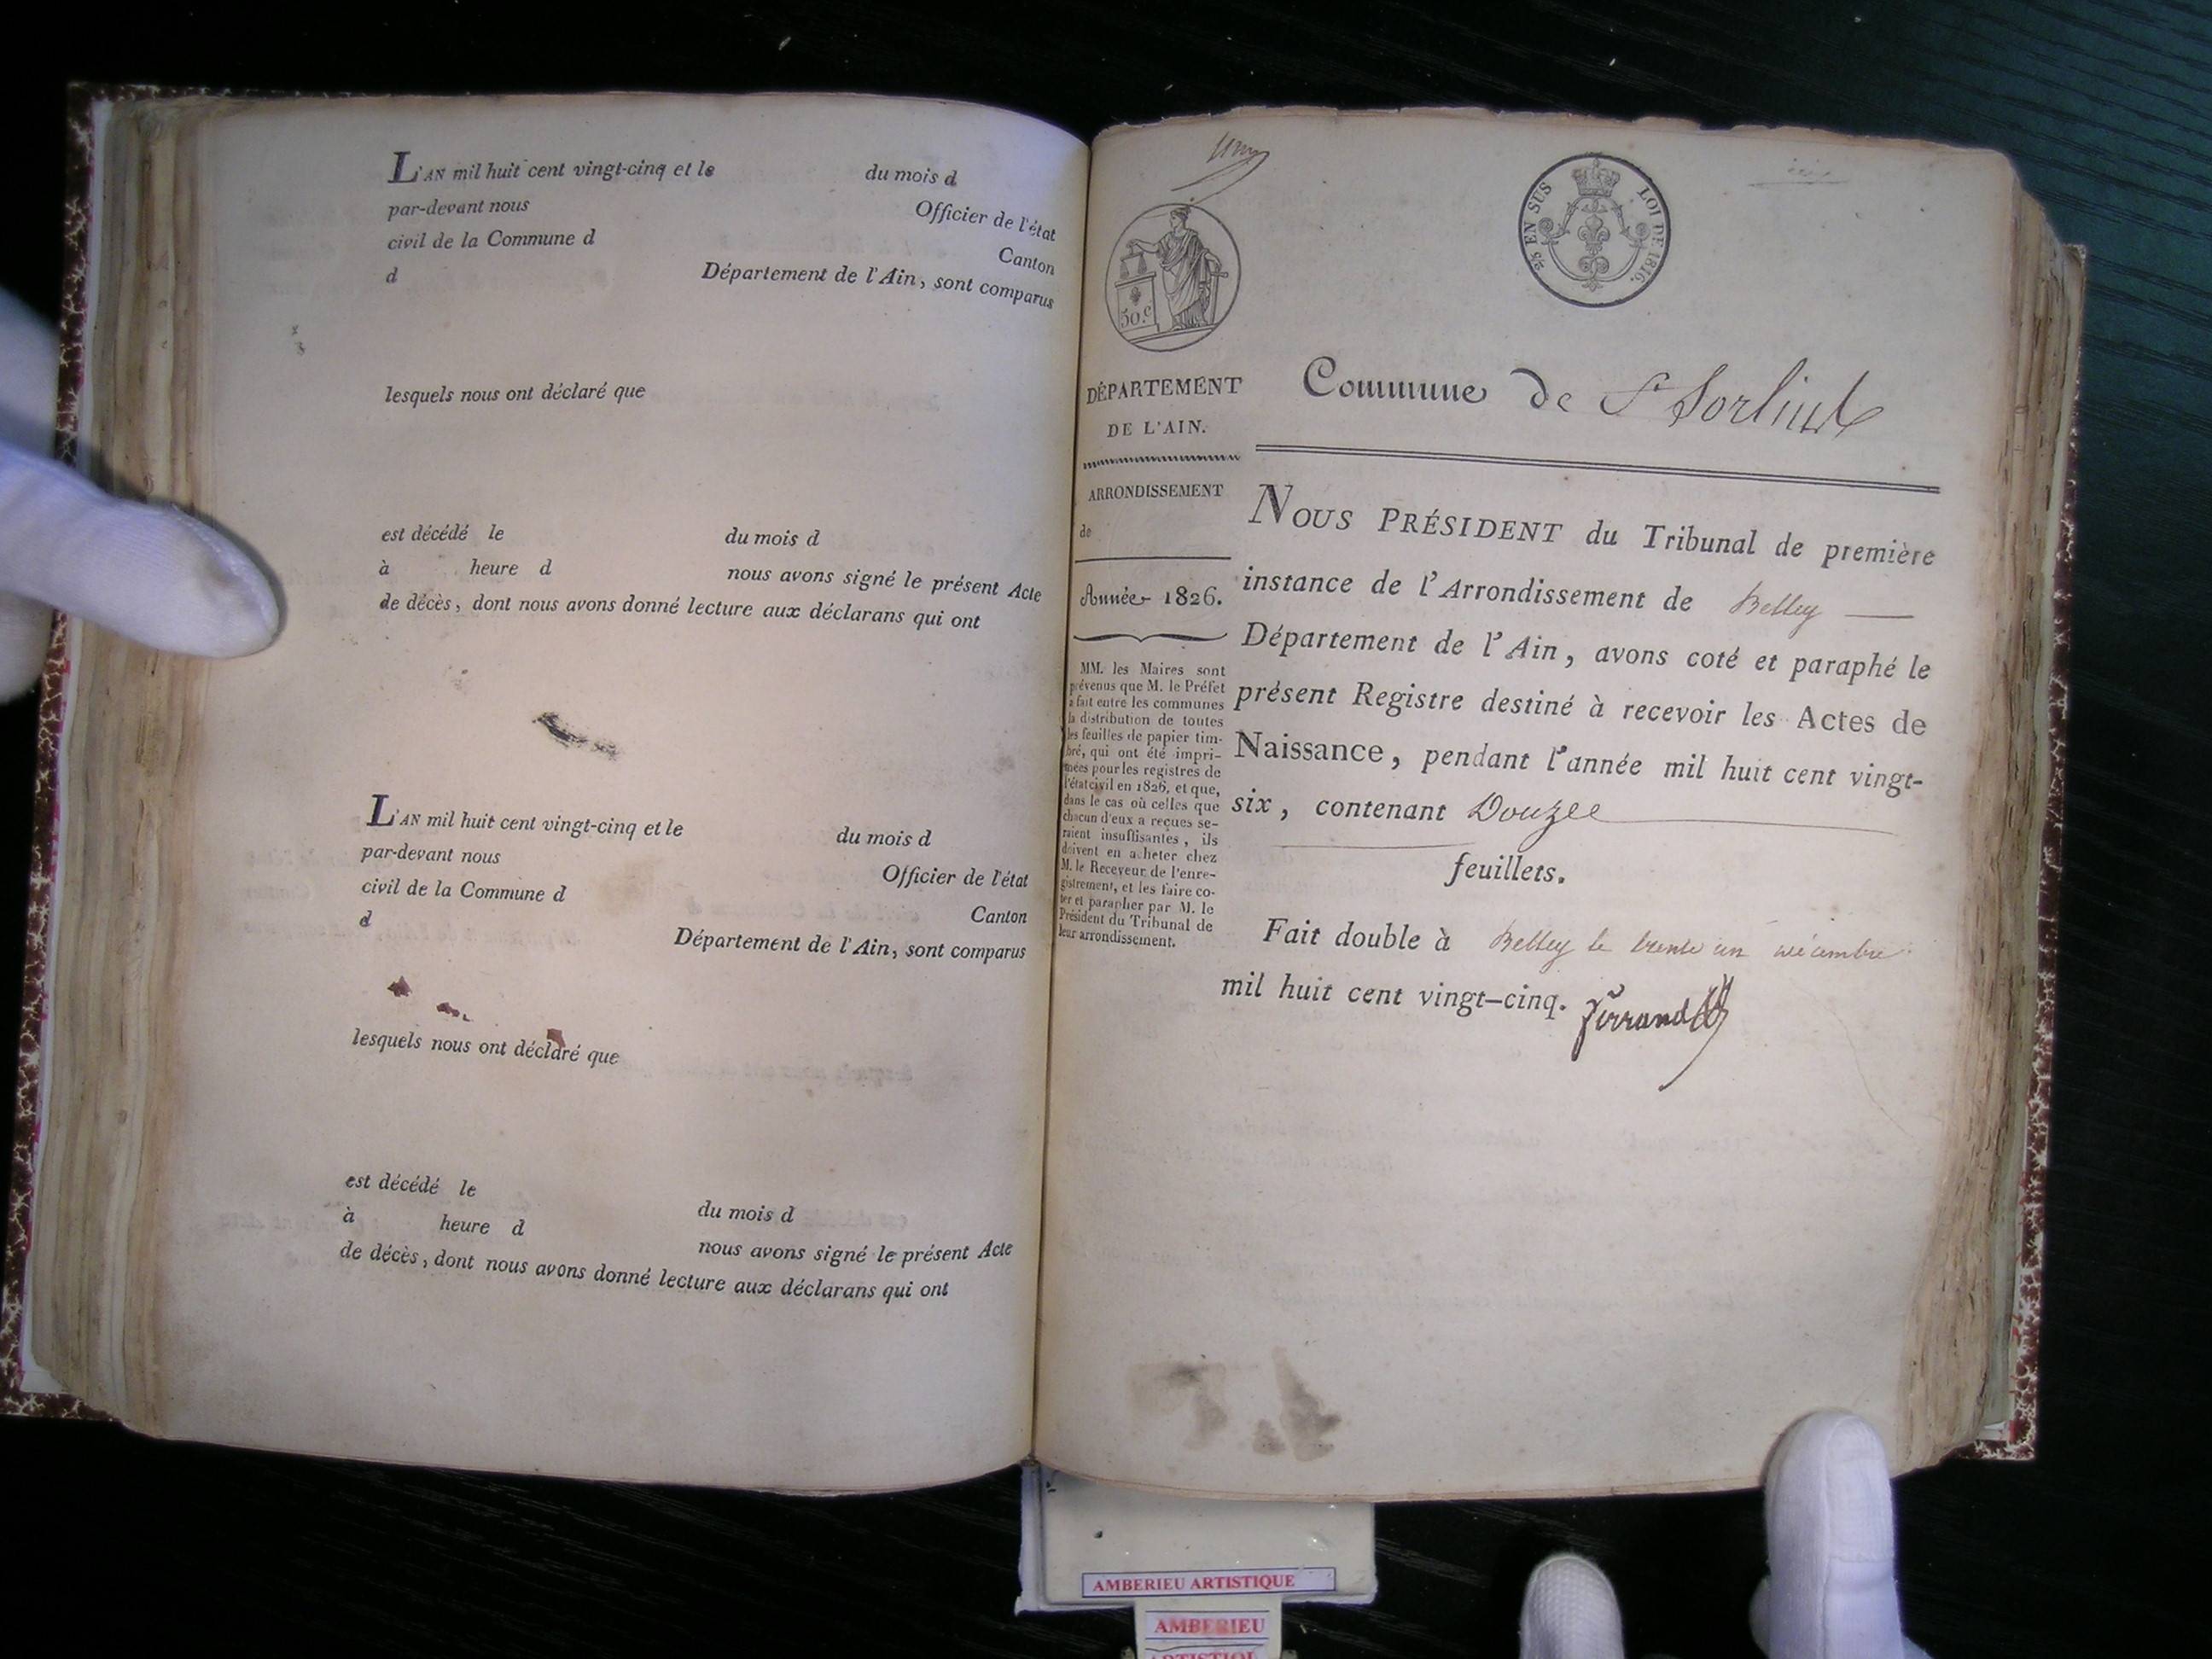 L'AN mil huit cent vingt-cinq et le du mois d
par-devant nous Officier de l'état
civil de la Commune d Canton
d Département de l'Ain, sont comparus
lesquels nous ont déclaré que
est décédé le du mois d
à heure d nous avons signé le présent Acte
de décès, dont nous avons donné lecture aux déclarans qui ont
L'AN mil huit cent vingt-cinq et le du mois d
par-devant nous Officier de l'état
civil de la Commune d Canton
d Département de l'Ain, sont comparus
lesquels nous ont déclaré que
est décédé le du mois d
à heure d nous avons signé le présent Acte
de décès, dont nous avons donné lecture aux déclarans qui ont
50.c
EN SUS LOI DE 1816.
DÉPARTEMENT
DE L'AIN.
ARRONDISSEMENT
de
Année 1826.
MM. les Maires sont
prévenus que M. le Préfet
a fait entre les communes
la distribution de toutes
les feuilles de papier tim-
bré, qui ont été impri-
mées pour les registres de
l'état civil en 1826, et que,
dans le cas où celles que
chacun d'eux a reçues se-
raient insuffisantes, ils
doivent en acheter chez
M. le Receveur de l'enre-
gistrement, et les faire co-
ter et parapher par M. le
Président du Tribunal de
leur arrondissement.
Commune de St Sorlin
NOUS PRÉSIDENT du Tribunal de première
instance de l'Arrondissement de Belley
Département de l'Ain, avons coté et paraphé le
présent Registre destiné à recevoir les Actes de
Naissance, pendant l'année mil huit cent vingt-
six, contenant Douze
feuillets.
Fait double à Belley le trente un décembre
mil huit cent vingt-cinq. Ferrand
AMBERIEU ARTISTIQUE
AMBERIEU
ARTISTIQUE